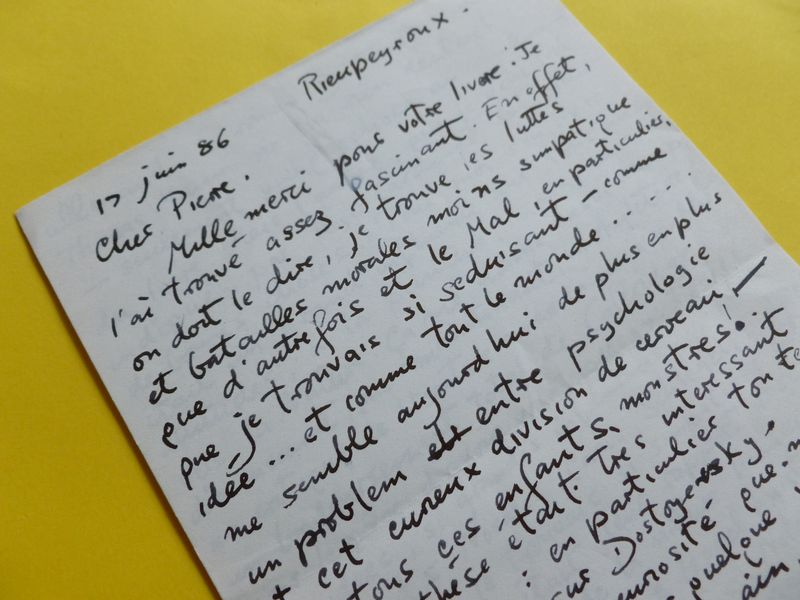 Rieupeyroux.
17 juin 86
Cher Pierre,
Mille merci pour votre livre. Je
l'ai trouvé assez fascinant. En effet,
on doit le dire, je trouve les luttes
et batailles morales moins simpatique
que d'autrefois et le Mal, en particulier,
que je trouvais si seduisant – comme
idée... et comme tout le monde.....
me semble aujourd'hui de plus en plus
un problem entre psychologie
et cet curieux division de cerveau, —
tous ces enfants, monstres!
thèse était. Tres interessant
: en particulier ton te
sur Dostoyevsky,
curiosité que
quelque